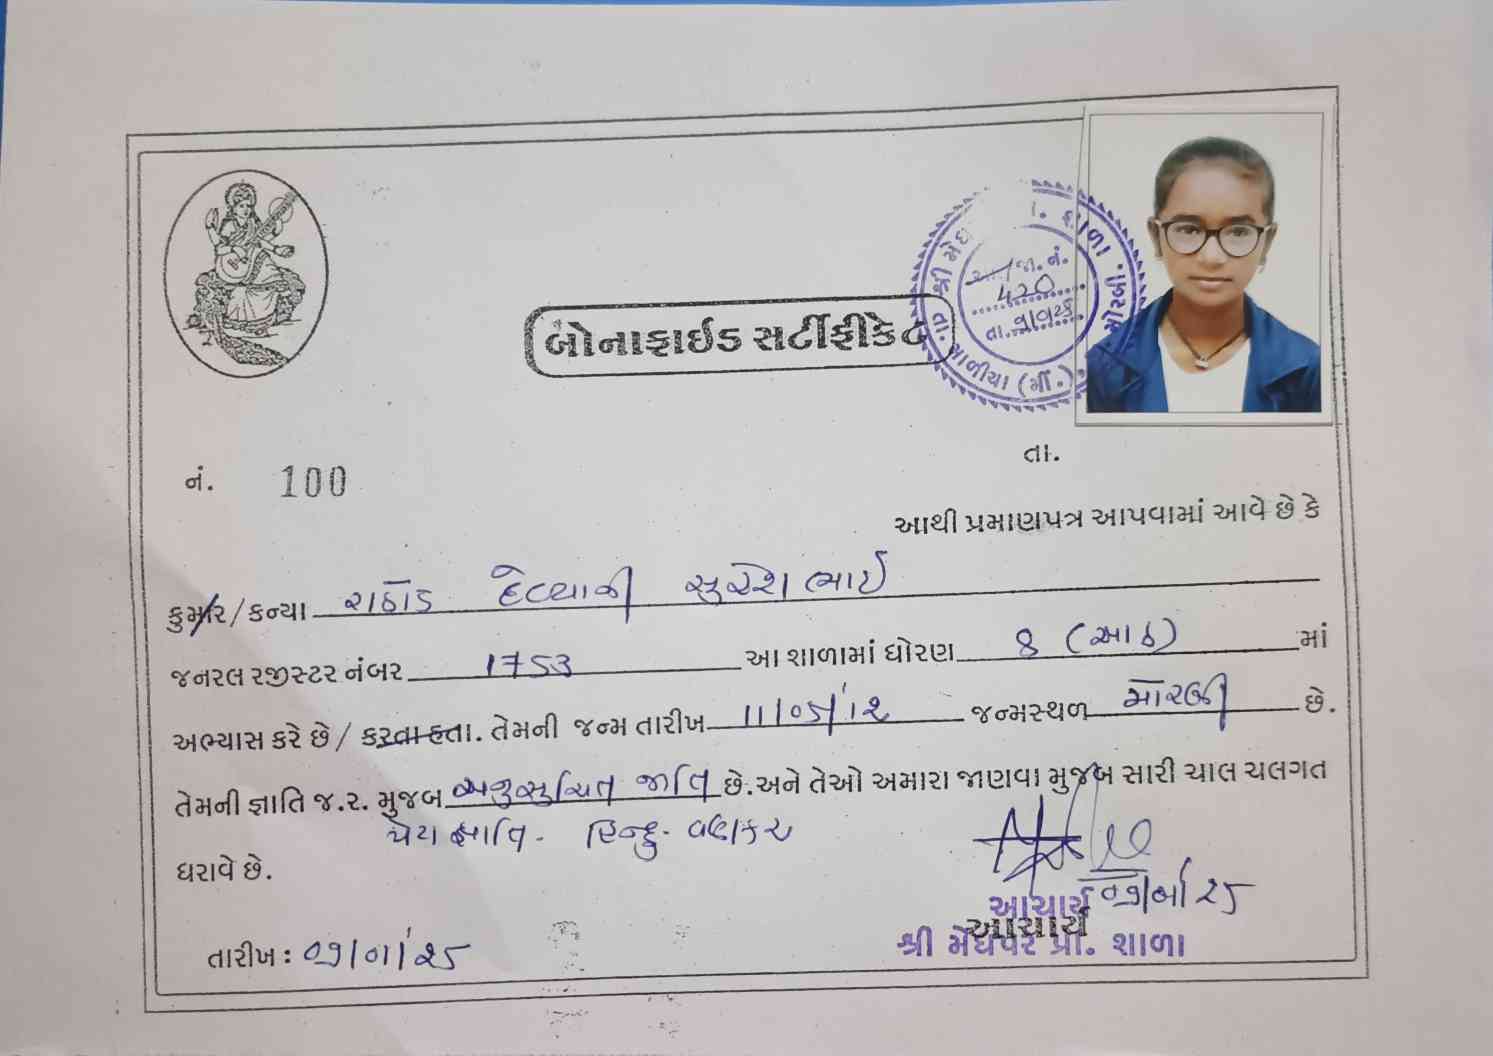 બોનાફાઈડ સર્ટીફીકેટ
શ્રી મેઘ . શાળા
મોરબી.
માળીયા (મીં.)
જા. નં.
420
તા.
નં. 100
તા.
આથી પ્રમાણપત્ર આપવામાં આવે છે કે
કુમાર / કન્યા રાઠોડ દેવ્યાની સુરેશભાઈ
જનરલ રજીસ્ટર નંબર 1753 આ શાળામાં ધોરણ 8 (આઠ) માં
અભ્યાસ કરે છે / કરતા હતા. તેમની જન્મ તારીખ 11/05/'12 જન્મસ્થળ મોરબી છે.
તેમની જ્ઞાતિ જ.ર. મુજબ અનુસુચિત જાતિ છે.અને તેઓ અમારા જાણવા મુજબ સારી ચાલ ચલગત
પેટા જ્ઞાતિ - હિન્દુ- વણકર
ધરાવે છે.
આચાર્ય
આચાર્ય
શ્રી મેઘપર પ્રા. શાળા
તારીખ : ૦૧/૦૧/૨૫